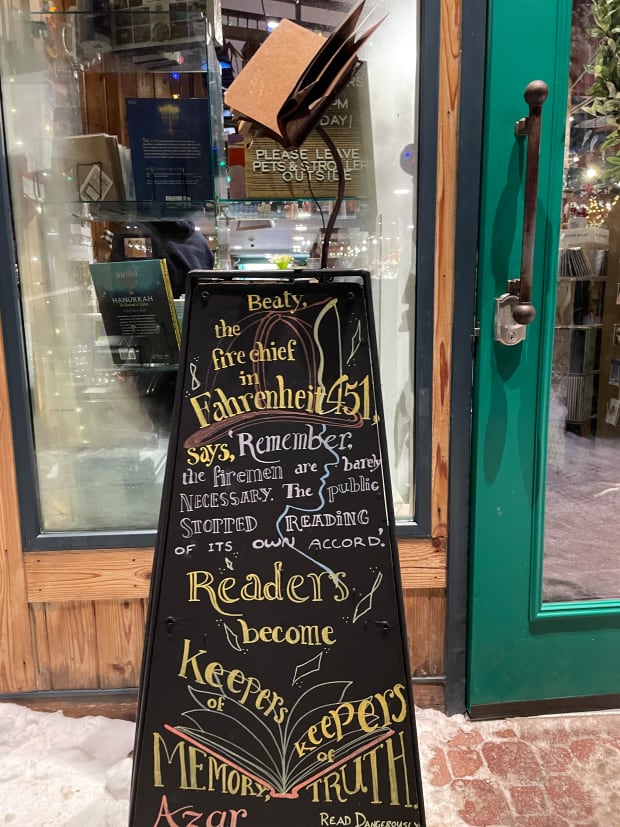 PM
DAY!
PLEASE LEAVE
PETS & STROLLERS
OUTSIDE
HANUKKAH
Beaty,
the
fire chief
in
Fahrenheit 451,
says, "Remember,
the firemen are barely
NECESSARY. The public
STOPPED READING
OF ITS OWN ACCORD."
Readers
become
Keepers
of
MEMORY,
Keepers
of
TRUTH.
Azar
READ DANGEROUSLY